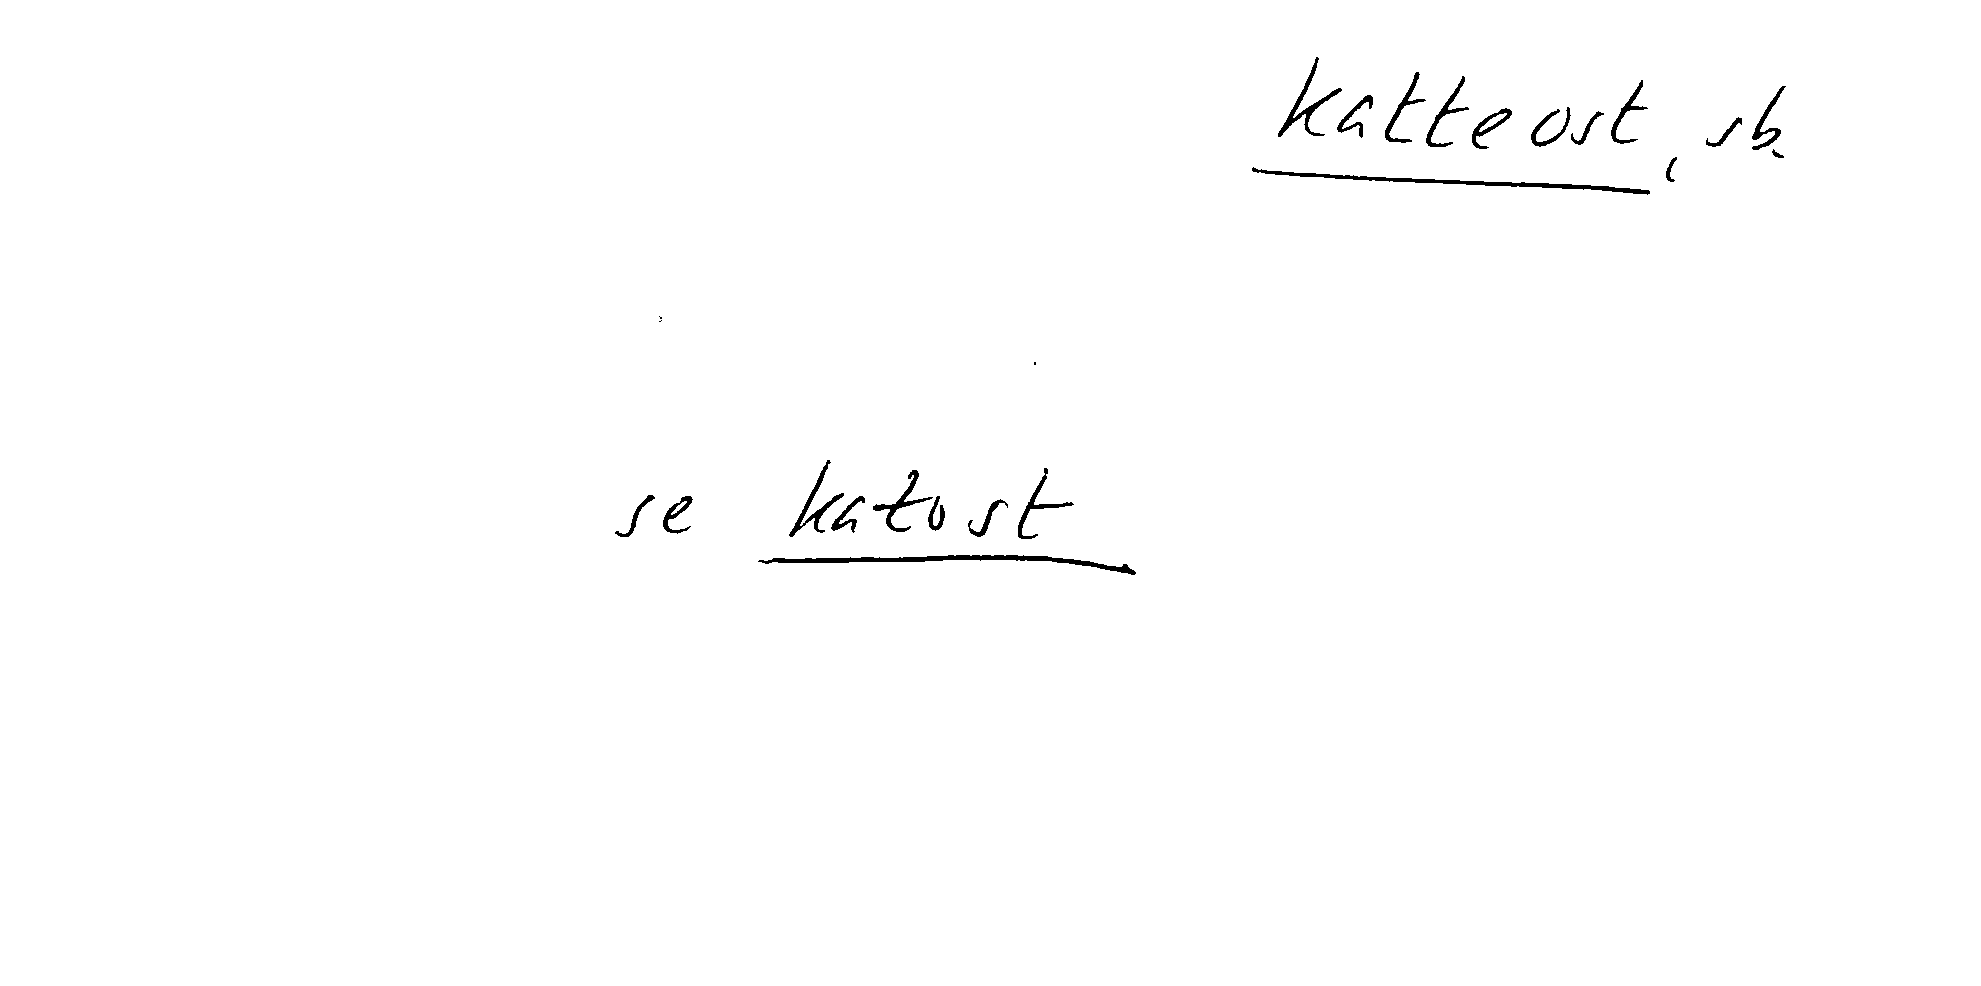 katteost, sb.
se katost